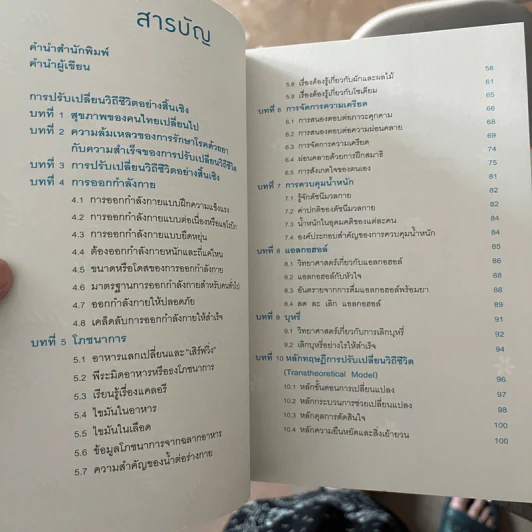 สารบัญ
คำนำสำนักพิมพ์
คำนำผู้เขียน
การปรับเปลี่ยนวิถีชีวิตอย่างสิ้นเชิง
บทที่ 1 สุขภาพของคนไทยเปลี่ยนไป
บทที่ 2 ความล้มเหลวของการรักษาโรคด้วยยา
กับความสำเร็จของการปรับเปลี่ยนวิถีชีวิต
บทที่ 3 การปรับเปลี่ยนวิถีชีวิตอย่างสิ้นเชิง
บทที่ 4 การออกกำลังกาย
4.1 การออกกำลังกายแบบฝึกความแข็งแรง
4.2 การออกกำลังกายแบบต่อเนื่องหรือแอโรบิก
4.3 การออกกำลังกายแบบยืดหยุ่น
4.4 ต้องออกกำลังกายหนักและถี่แค่ไหน
4.5 ขนาดหรือโดสของการออกกำลังกาย
4.6 มาตรฐานการออกกำลังกายสำหรับคนทั่วไป
4.7 ออกกำลังกายให้ปลอดภัย
4.8 เคล็ดลับการออกกำลังกายให้สำเร็จ
บทที่ 5 โภชนาการ
5.1 อาหารแลกเปลี่ยนและ"เสิร์ฟวิ่ง"
5.2 พีระมิดอาหารหรือธงโภชนาการ
5.3 เรียนรู้เรื่องแคลอรี
5.4 ไขมันในอาหาร
5.5 ไขมันในเลือด
5.6 ข้อมูลโภชนาการจากฉลากอาหาร
5.7 ความสำคัญของน้ำต่อร่างกาย
58
5.8 เรื่องต้องรู้เกี่ยวกับผักและผลไม้ 61
5.9 เรื่องต้องรู้เกี่ยวกับโซเดียม 65
บทที่ 6 การจัดการความเครียด 66
6.1 การสนองตอบต่อภาวะคุกคาม 68
6.2 การสนองตอบต่อความผ่อนคลาย 69
6.3 การจัดการความเครียด 74
6.4 ผ่อนคลายด้วยการฝึกสมาธิ 75
6.5 การสังเกตใจของตนเอง 81
บทที่ 7 การควบคุมน้ำหนัก 82
7.1 รู้จักดัชนีมวลกาย 82
7.2 ค่าปกติของดัชนีมวลกาย 84
7.3 น้ำหนักในอุดมคติของแต่ละคน 84
7.4 องค์ประกอบสำคัญของการควบคุมน้ำหนัก 85
บทที่ 8 แอลกอฮอล์ 86
8.1 วิทยาศาสตร์เกี่ยวกับแอลกอฮอล์ 86
8.2 แอลกอฮอล์กับหัวใจ 87
8.3 อันตรายจากการดื่มแอลกอฮอล์พร้อมยา 88
8.4 ลด ละ เลิก แอลกอฮอล์ 91
บทที่ 9 บุหรี่ 92
9.1 วิทยาศาสตร์เกี่ยวกับการเลิกบุหรี่ 94
9.2 เลิกบุหรี่อย่างไรให้สำเร็จ
บทที่ 10 หลักทฤษฎีการปรับเปลี่ยนวิถีชีวิต
(Transtheoretical Model) 96
10.1 หลักขั้นตอนการเปลี่ยนแปลง 97
10.2 หลักกระบวนการช่วยเปลี่ยนแปลง 98
10.3 หลักดุลการตัดสินใจ 100
10.4 หลักความยืนหยัดและสิ่งเย้ายวน 100